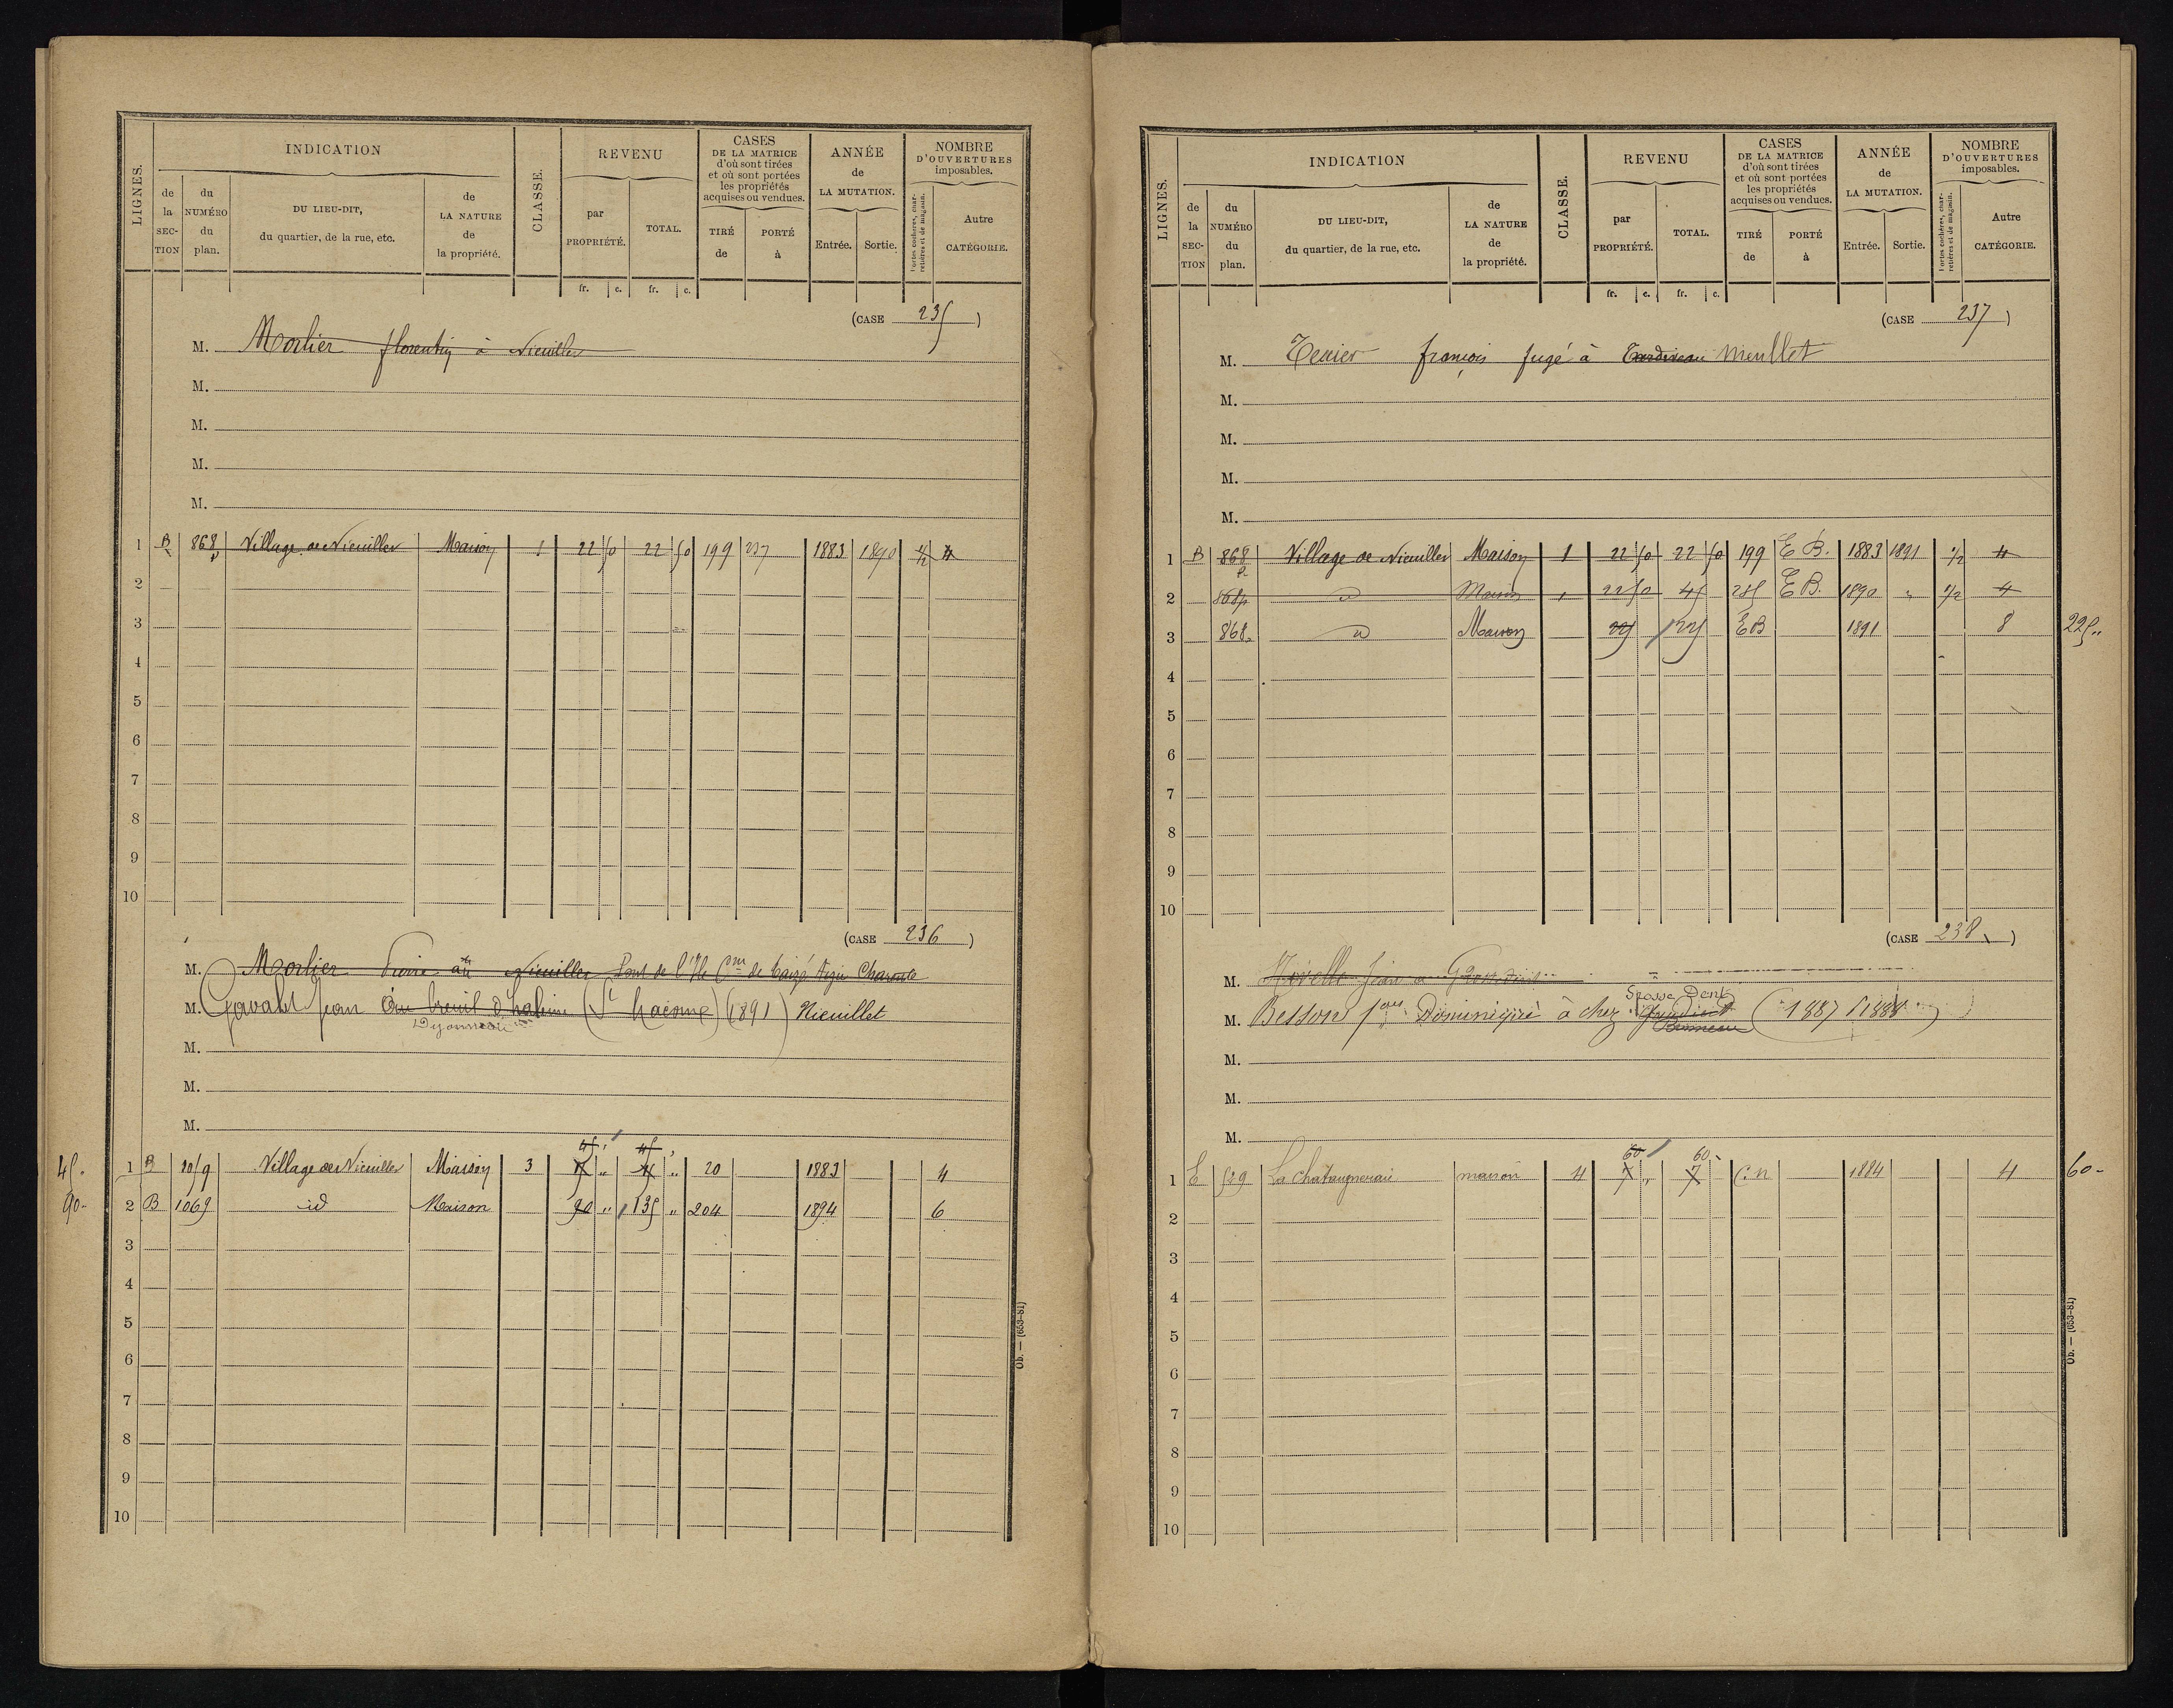 LIGNES. INDICATION CLASSE. REVENU CASES DE LA MATRICE d'où sont tirées et où sont portées les propriétés acquises ou vendues. ANNÉE de LA MUTATION. NOMBRE D'OUVERTURES imposables.
de la SECTION du NUMÉRO du plan. DU LIEU-DIT, du quartier, de la rue, etc. de LA NATURE de la propriété. par PROPRIÉTÉ. TOTAL. TIRÉ de PORTÉ à Entrée. Sortie. Portes cochères, charretières et de magasin. Autre CATÉGORIE.
fr. c. fr. c.
(CASE 235)
M. Morlier florentin à Nieuillet
M.
M.
M.
M.
1 B 868p Village de Nieuillet Maison 1 22 50 22 50 199 237 1883 1890 1/2 4
2
3
4
5
6
7
8
9
10
(CASE 236)
M. Morlier Pierre au Nieuillet Pont de l'Isle Cne de Charente
M. Gavalet Jean (1891) Nieuillet
M.
M.
M.
45 " 45 "
45 " 1 B 1059 Village de Nieuillet Maison 3 " " 20 1883 4
90 - 2 B 1069 id Maison 90 " 135 " 204 1894 6
3
4
5
6
7
8
9
10
Ob. — (653-81)
LIGNES. INDICATION CLASSE. REVENU CASES DE LA MATRICE d'où sont tirées et où sont portées les propriétés acquises ou vendues. ANNÉE de LA MUTATION. NOMBRE D'OUVERTURES imposables.
de la SECTION du NUMÉRO du plan. DU LIEU-DIT, du quartier, de la rue, etc. de LA NATURE de la propriété. par PROPRIÉTÉ. TOTAL. TIRÉ de PORTÉ à Entrée. Sortie. Portes cochères, charretières et de magasin. Autre CATÉGORIE.
fr. c. fr. c.
(CASE 237)
M. Texier françois fugé à Tardiveau Nieullet
M.
M.
M.
M.
1 B 868p Village de Nieuillet Maison 1 22 50 22 50 199 E B. 1883 1891 1/2 4
2 868p d Maison " 22 50 45 235 E B. 1890 " 1/2 4
3 868p d Maison EB 1891 8 225 "
4
5
6
7
8
9
10
(CASE 238)
M. Jean à
M. Besson Dominique à chez (1887 1888)
M.
M.
M.
60 60 -
1 E 529 La chataugneraie maison 4 7 " 7 C. n 1884 4 60 -
2
3
4
5
6
7
8
9
10
Ob. — (653-81)